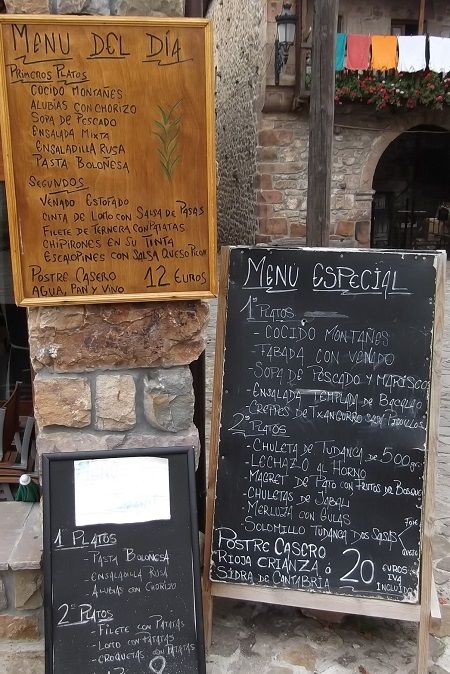 MENU DEL DÍA
PRIMEROS PLATOS
COCIDO MONTAÑES
ALUBIAS CON CHORIZO
SOPA DE PESCADO
ENSALADA MIXTA
ENSALADILLA RUSA
PASTA BOLOÑESA
SEGUNDOS
VENADO ESTOFADO
CINTA DE LOMO CON SALSA DE PASAS
FILETE DE TERNERA CON PATATAS
CHIPIRONES EN SU TINTA
ESCALOPINES CON SALSA QUESO PICON
POSTRE CASERO
AGUA, PAN Y VINO
12 EUROS
MENU ESPECIAL
1º PLATOS
- COCIDO MONTAÑES
- FABADA CON VENADO
- SOPA DE PESCADO Y MARISCOS
- ENSALADA TEMPLADA DE BACALAO
- CREPPES DE TXANGURRO SALSA
2º PLATOS
- CHULETA DE TUDANCA DE 500gr.
- LECHAZO AL HORNO
- MAGRET DE PATO CON FRUTOS DE BOSQUE
- CHULETAS DE JABALI
- MERLUZA CON GULAS
- SOLOMILLO TUDANCA DOS SALSAS
QUESO
POSTRE CASERO
RIOJA CRIANZA Ó
SIDRA DE CANTABRIA
20 EUROS
IVA
INCLUIDO
1º PLATOS
- PASTA BOLOÑESA
- ENSALADILLA RUSA
- ALUBIAS CON CHORIZO
2º PLATOS
- FILETE CON PATATAS
- LOMO CON PATATAS
- CROQUETAS CON PATATAS